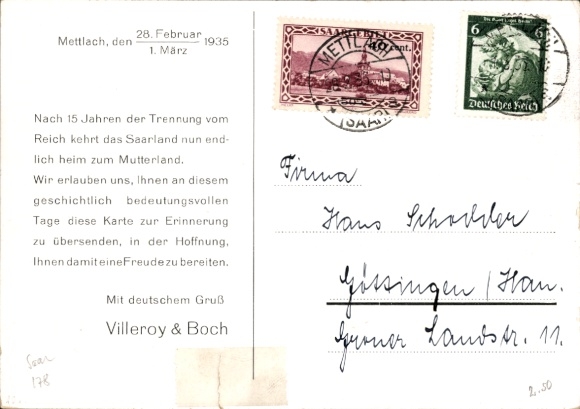 Mettlach, den 28. Februar / 1. März 1935
Nach 15 Jahren der Trennung vom
Reich kehrt das Saarland nun end-
lich heim zum Mutterland.
Wir erlauben uns, Ihnen an diesem
geschichtlich bedeutungsvollen
Tage diese Karte zur Erinnerung
zu übersenden, in der Hoffnung,
Ihnen damit eine Freude zu bereiten.
Mit deutschem Gruß
Villeroy & Boch
Saar
178
SAARGEBIET
cent.
METTLACH
(SAAR)
6
Deutsches Reich
Firma
Hans Schodder
Göttingen / Han.
Groner Landstr. 11.
2.50